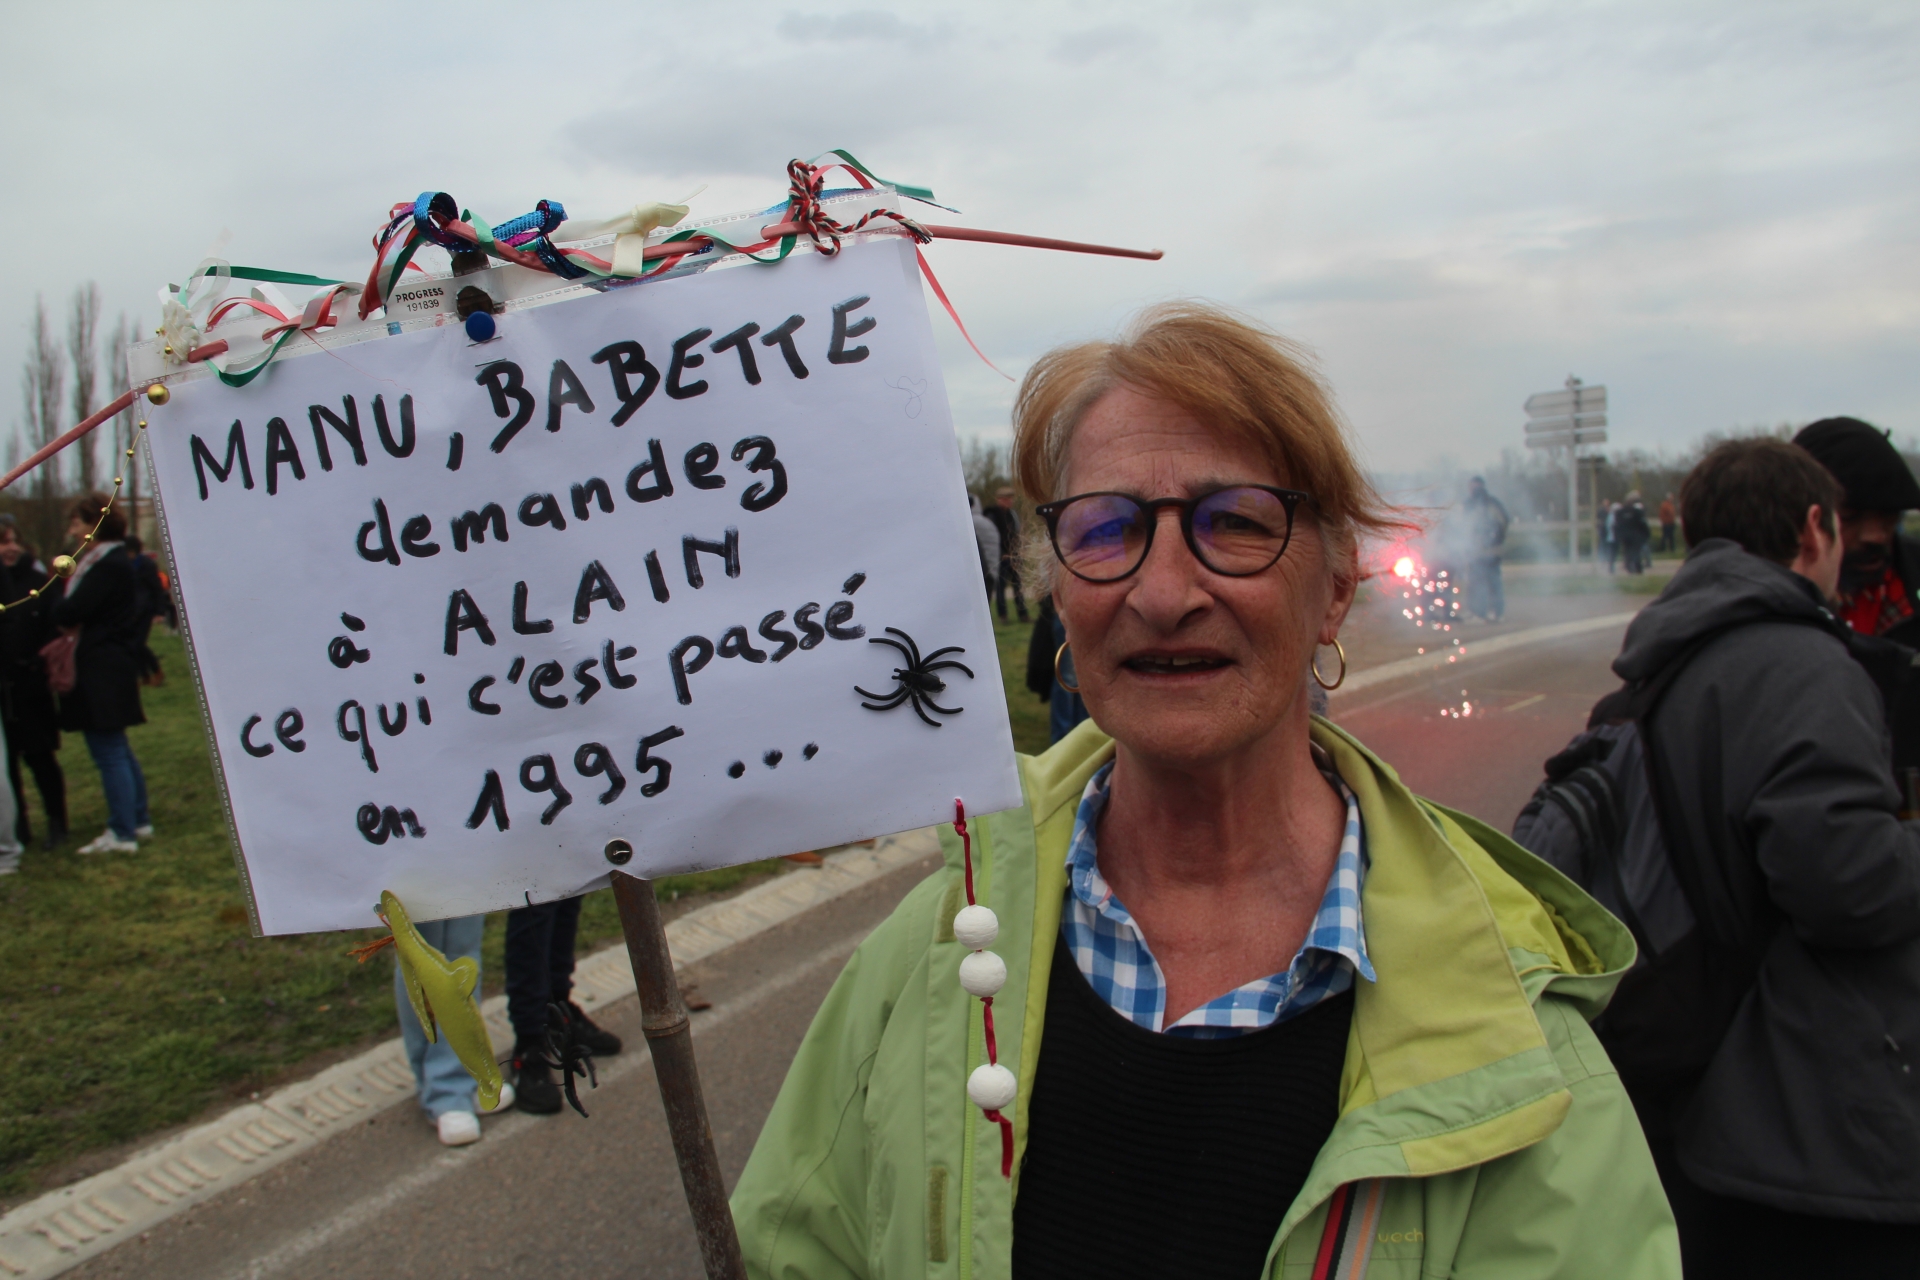 PROGRESS
191839
MANU, BABETTE
demandez
à ALAIN
ce qui c'est passé
en 1995...